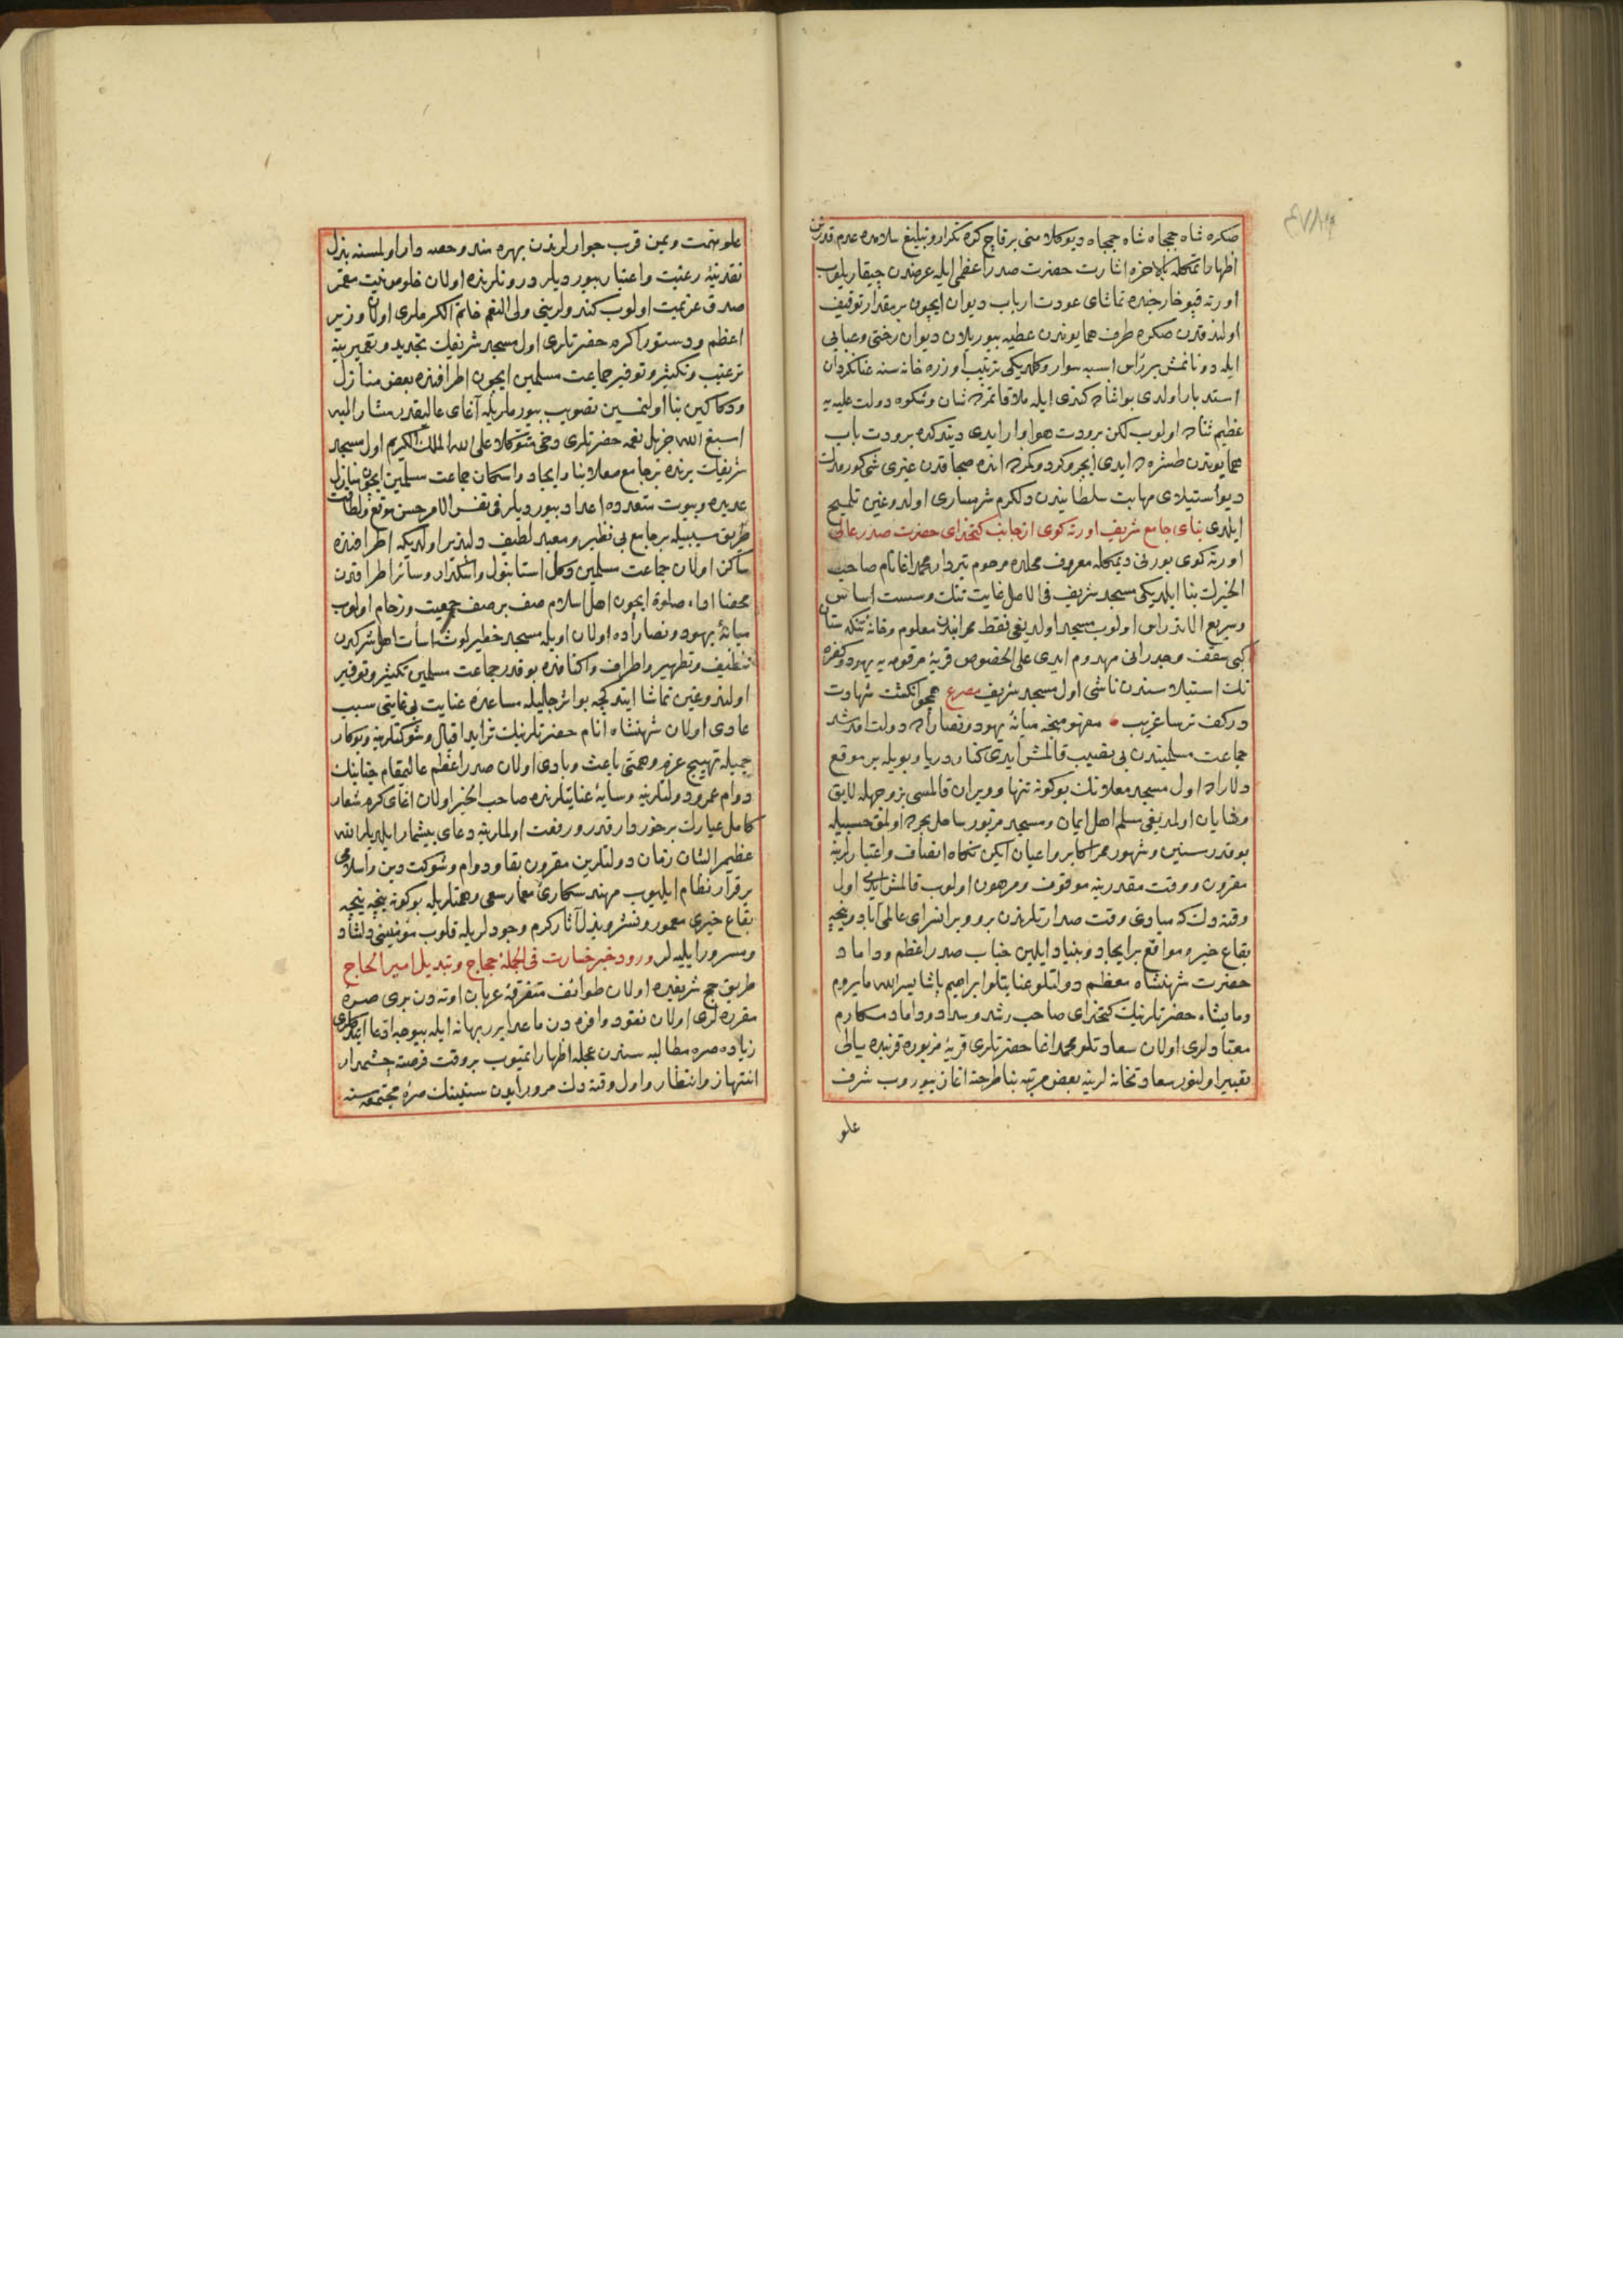 صكره شاه ججاه شاه ججاه ديو كلامنى برقاچ كره تكرار و تبليغ سلامده عدم قدرتن
اظهار اتمكله بالاخره اشارت حضرت صدر اعظمى ايله عرضدن چيقاريلوب
اورته قپو خارجنده تماشاى عودت ارباب ديوان ايچون بر مقدار توقيف
اولندقدن صكره طرف همايوندن عطيه بيوريلان ديوان رختى و عبايى
ايله دوناتمش بر راس اسبه سوار و كلديكى ترتيب اوزره خانه سنه عنانكردان
استدبار اولدى بو اثناده كندى ايله ملاقاتمزده شان و شكوه دولت عليه يه
عظيم ثنا ده اولوب لكن برودت هوا وار ايدى ديدكده برودت باب
همايوندن طشره ده ايدى ايچرو كردوكمزده انده صيجاقدن غيرى شى كورمدك
ديو استيلاى مهابت سلطانيدن دلكرم شرمسارى اولدوغين تلميح
ايلدى بناى جامع شريف اورته كوى از جانب كتخداى حضرت صدر عالى
اورته كوى بورنى ديمكله معروف محلده مرحوم تيردار محمد اغا نام صاحب
الخيرك بنا ايلديكى مسجد شريف فى الاصل غايت تنك و سست اساس
و سريع الاندراس اولوب مسجد اولديغى فقط محرابندن معلوم و خانه تنكدستان
كبى سقف و جدرانى مهدوم ايدى على الخصوص قريه مرقومه يه يهود و كفره
نك استيلاسندن ناشى اول مسجد شريف مصرع همچو انكشت شهادت
در كف ترسا غريب • مفهومنجه ميانه يهود و نصاراده دولت افدشد
جماعت مسلميندن بى نصيب قالمش ايدى كنار دريا و بويله بر موقع
دلاراده اول مسجد معلانك بوكونه تنها و ويران قالمسى بر وجهله لايق
و شايان اولمديغى مسلم اهل ايمان و مسجد مزبور ساحل بحرده اولمق حسبيله
بو قدر سنين و شهور ممر اكابر و اعيان ايكن نكاه انصاف و اعتبارلرينه
مقرون و وقت مقدرينه موقوف و مرهون اولوب قالمش ايدى اول
وقتدنكه مبادئ وقت صدارتلرندن برو ويرانسراى عالمى آباد و نيجه
بقاع خير و مواقع بر ايجاد و بنياد ايلين جناب صدر اعظم و داماد
حضرت شهنشاه معظم دولتلو عنايتلو ابراهيم پاشا يسر الله ما يروم
و ما يشاء حضرتلرينك كتخداى صاحب رشد و سداد و داماد مكارم
معتادلرى اولان سعادتلو محمد اغا حضرتلرى قريه مزبوره قربنده يالى
تعبير اولنور سعادتخانه لرينه بعض مرتبه بنا طرحنه اغاز بيوروب شرف
علو
علو همت و يمن قرب جوارلرندن بهره مند و حصه دار اولمسنه بذل
نقدينه رغبت و اعتبار بيورديلر درونلرنده اولان خلوص نيت مقر
صدق عزيمت اولوب كندولرينى ولى النعم خاتم الكرملرى اولان وزير
اعظم و دستور اكرم حضرتلرى اول مسجد شريفك تجديد و تعميرينه
ترغيب و تكثير و توفير جماعت مسلمين ايچون اطرافنده بعض منازل
و دكاكين بنا اولنمسين تصويب بيورملريله آغاى عاليقدر مشار اليه
اسبغ الله جزيل نعمه حضرتلرى دخى متوكلا على الله الملك الكريم اول مسجد
شريفك يرنده بر جامع معلا بنا و ايجاد و اسكان جماعت مسلمين ايچون منازل
عديده و بيوت متعدده اعداد بيورديلر فى نفس الامر حسن موقع و لطافت
طريق سببيله بر جامع بى نظير و معبد لطيف دلپذير اولديكه اطرافنده
ساكن اولان جماعت مسلمين و كل استانبول و اسكدار و سائر اطرافدن
محضا اداء صلوة ايچون اهل اسلام صف بر صف جمعيت و زحام اولوب
ميانه يهود و نصاراده اولان اويله مسجد خطير لوث اسأت اهل شركدن
تنظيف و تطهير و اطراف و اكنافنده بو قدر جماعت مسلمين تكثير و توفير
اولندوغين تماشا ايتدكجه بو اثر جليله مساعده عنايت بى غايتى سبب
عادى اولان شهنشاه انام حضرتلرينك تزايد اقبال و شوكتلرينه و بو كار
جميله تهييج عزم و همتى باعث و بادى اولان صدر اعظم عاليمقام جنابنك
دوام عمر و دولتلرينه و سايه عنايتلرنده صاحب الخير اولان اغاى كرم شعار
كامل عيارك برخوردار قدر و رفعت اولملرينه دعاى بيشمار ايلديلر الله
عظيم الشان زمان دولتلرين مقرون بقا و دوام و شوكت دين و اسلامى
برقرار نظام ايليوب مهندسكارئ معمار سعى و همتلريله بوكونه نيجه نيجه
بقاع خيرى معمور و نشر و بذل آثار كرم وجودلريله قلوب مؤمنينى دلشاد
و مسرور ايليه لر ورود خبر خسارت فى الجمله حجاج و تبديل امير الحاج
طريق حج شريفده اولان طوائف متفرقه عربان اوتدن برى صره
مقرره لرى اولان نقود وافره دن ماعدا برر بهانه ايله بيوجه ادعا ايتدكلرى
زياده صره مطالبه سندن عجله اظهار اتميوب بر وقت فرصته چشمدار
انتهاز و انتظار و اول وقتدنك مرور ايدن سنينك صره مجتمعه سنه